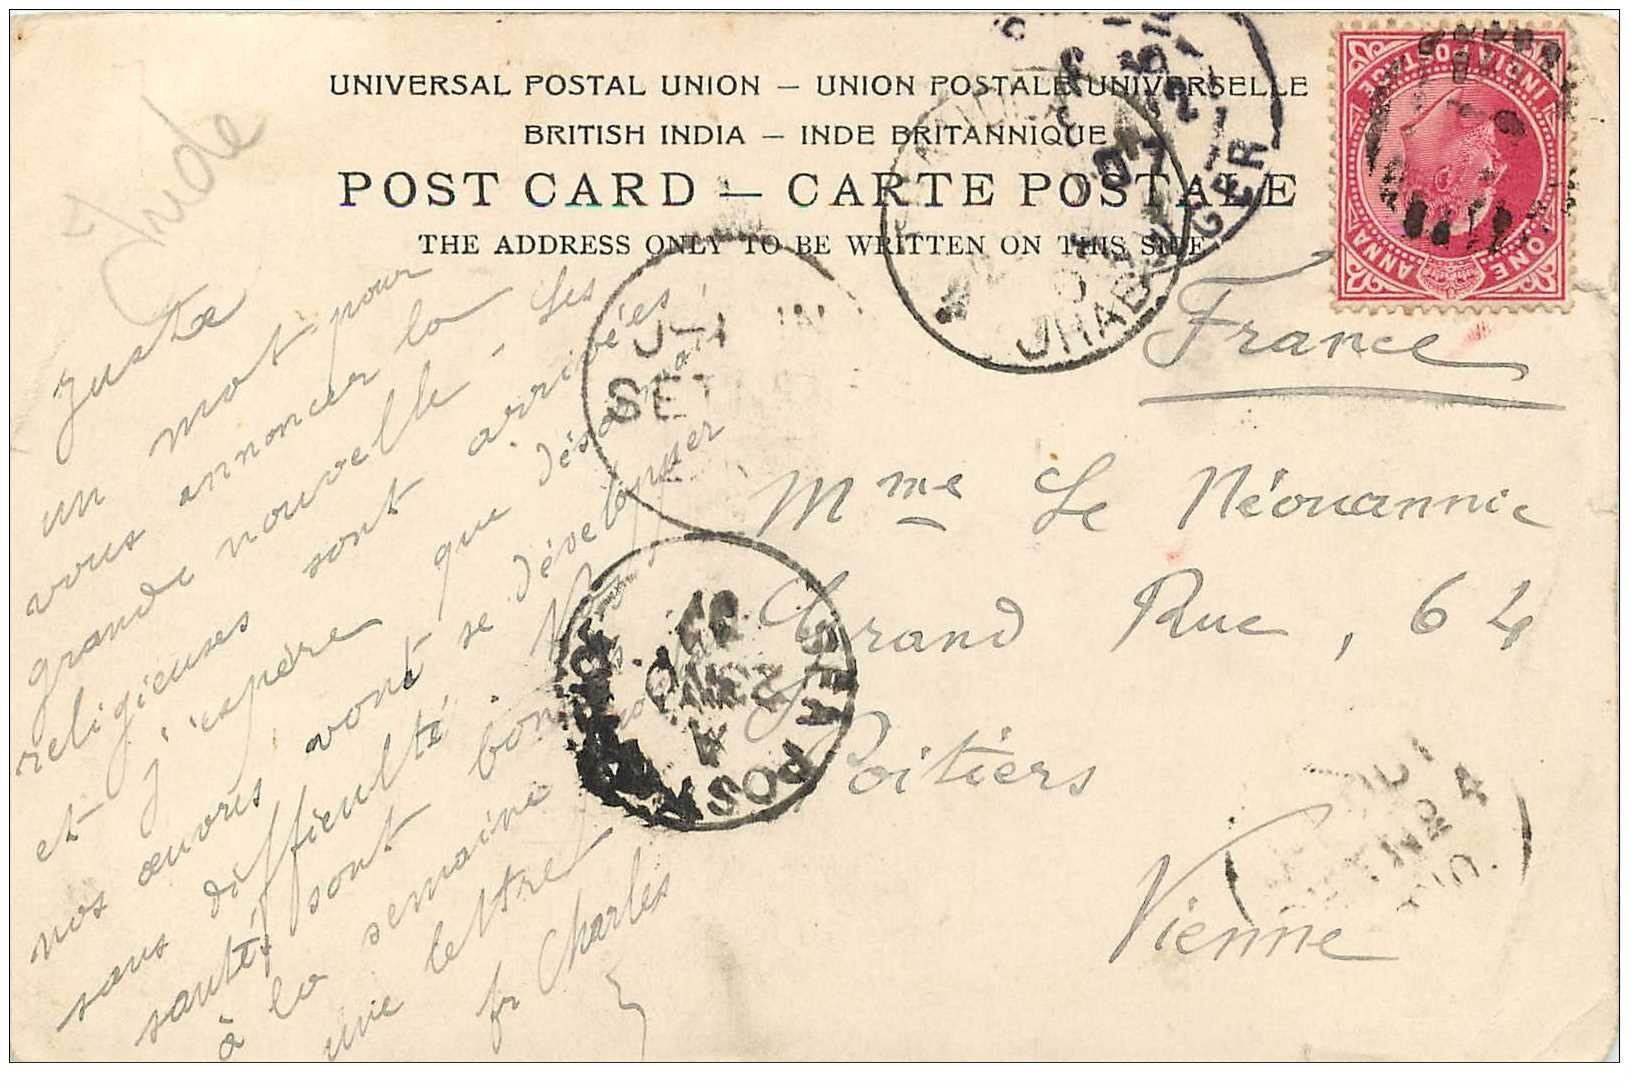 UNIVERSAL POSTAL UNION — UNION POSTALE UNIVERSELLE
BRITISH INDIA — INDE BRITANNIQUE
POST CARD — CARTE POSTALE
THE ADDRESS ONLY TO BE WRITTEN ON THIS SIDE
INDIA POSTAGE
ONE ANNA
Inde
Juste
un mot pour
vous annoncer la
grande nouvelle. Les
religieuses sont arrivées,
et j'espère que désormais
nos œuvres vont se développer
sans difficulté. Nos
santés sont bonnes
à la semaine prochaine
une lettre
fr Charles
France
Mme Le Néouannic
Grand Rue, 64
Poitiers
Vienne
JHAB
GER
SEA POST
SE
2